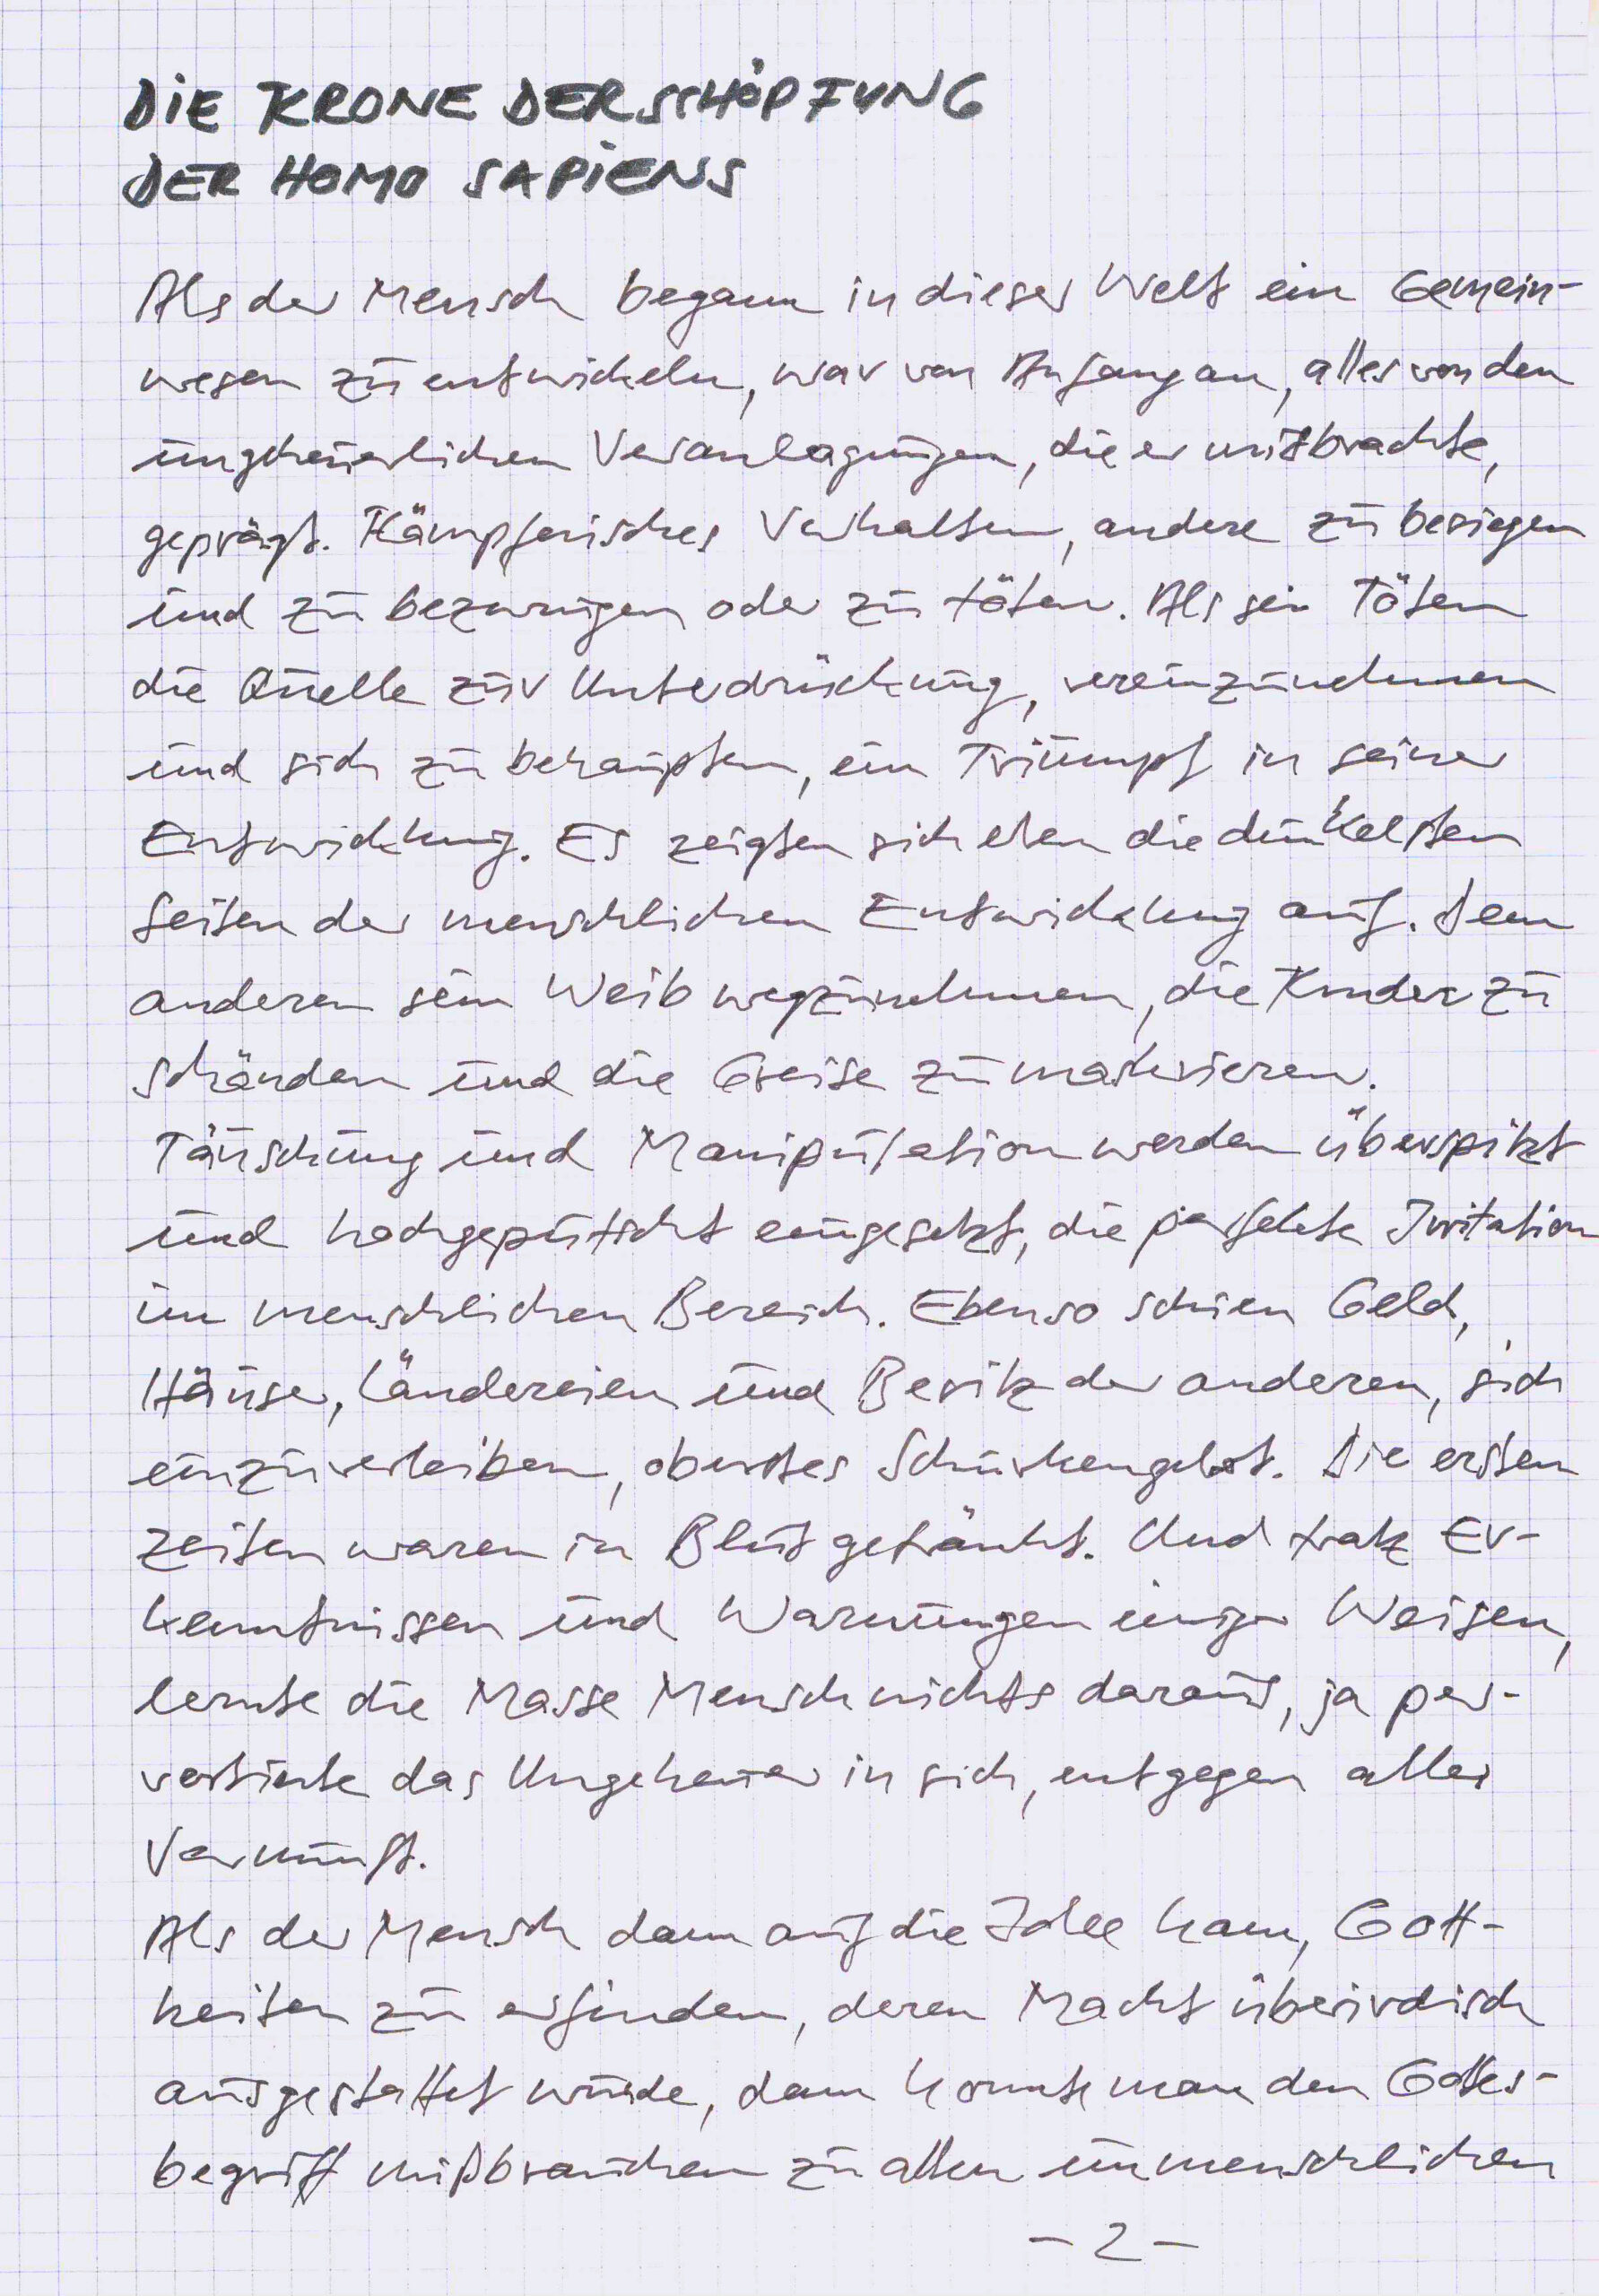 DIE KRONE DER SCHÖPFUNG
DER HOMO SAPIENS
Als der Mensch begann in dieser Welt ein Gemein-
wesen zu entwickeln, war von Anfang an, alles von den
ungeheuerlichen Veranlagungen, die er mitbrachte,
geprägt. Kämpferisches Verhalten, andere zu besiegen
und zu bezwingen oder zu töten. Als sein Töten
die Quelle zur Unterdrückung, vereinzunehmen
und sich zu behaupten, ein Triumpf in seiner
Entwicklung. Es zeigten sich eben die dunkelsten
Seiten der menschlichen Entwicklung auf. Dem
anderen sein Weib wegzunehmen, die Kinder zu
schänden und die Greise zu
Täuschung und Manipulation werden überspitzt
und hochgeputscht eingesetzt, die perfekte Irritation
im menschlichen Bereich. Ebenso schien Geld,
Häuser, Ländereien und Besitz der anderen, sich
einzuverleiben, oberstes Schurkengebot. Die ersten
Zeiten waren in Blut getränkt. Und trotz Er-
kenntnissen und Warnungen einiger Weisen,
lernte die Masse Mensch nichts daraus, ja per-
vertierte das Ungeheuer in sich, entgegen aller
Vernunft.
Als der Mensch dann auf die Idee kam, Gott-
heiten zu erfinden, deren Macht überirdisch
ausgestattet wurde, dann konnte man den Gottes-
begriff mißbrauchen zu allen unmenschlichen
- 2 -